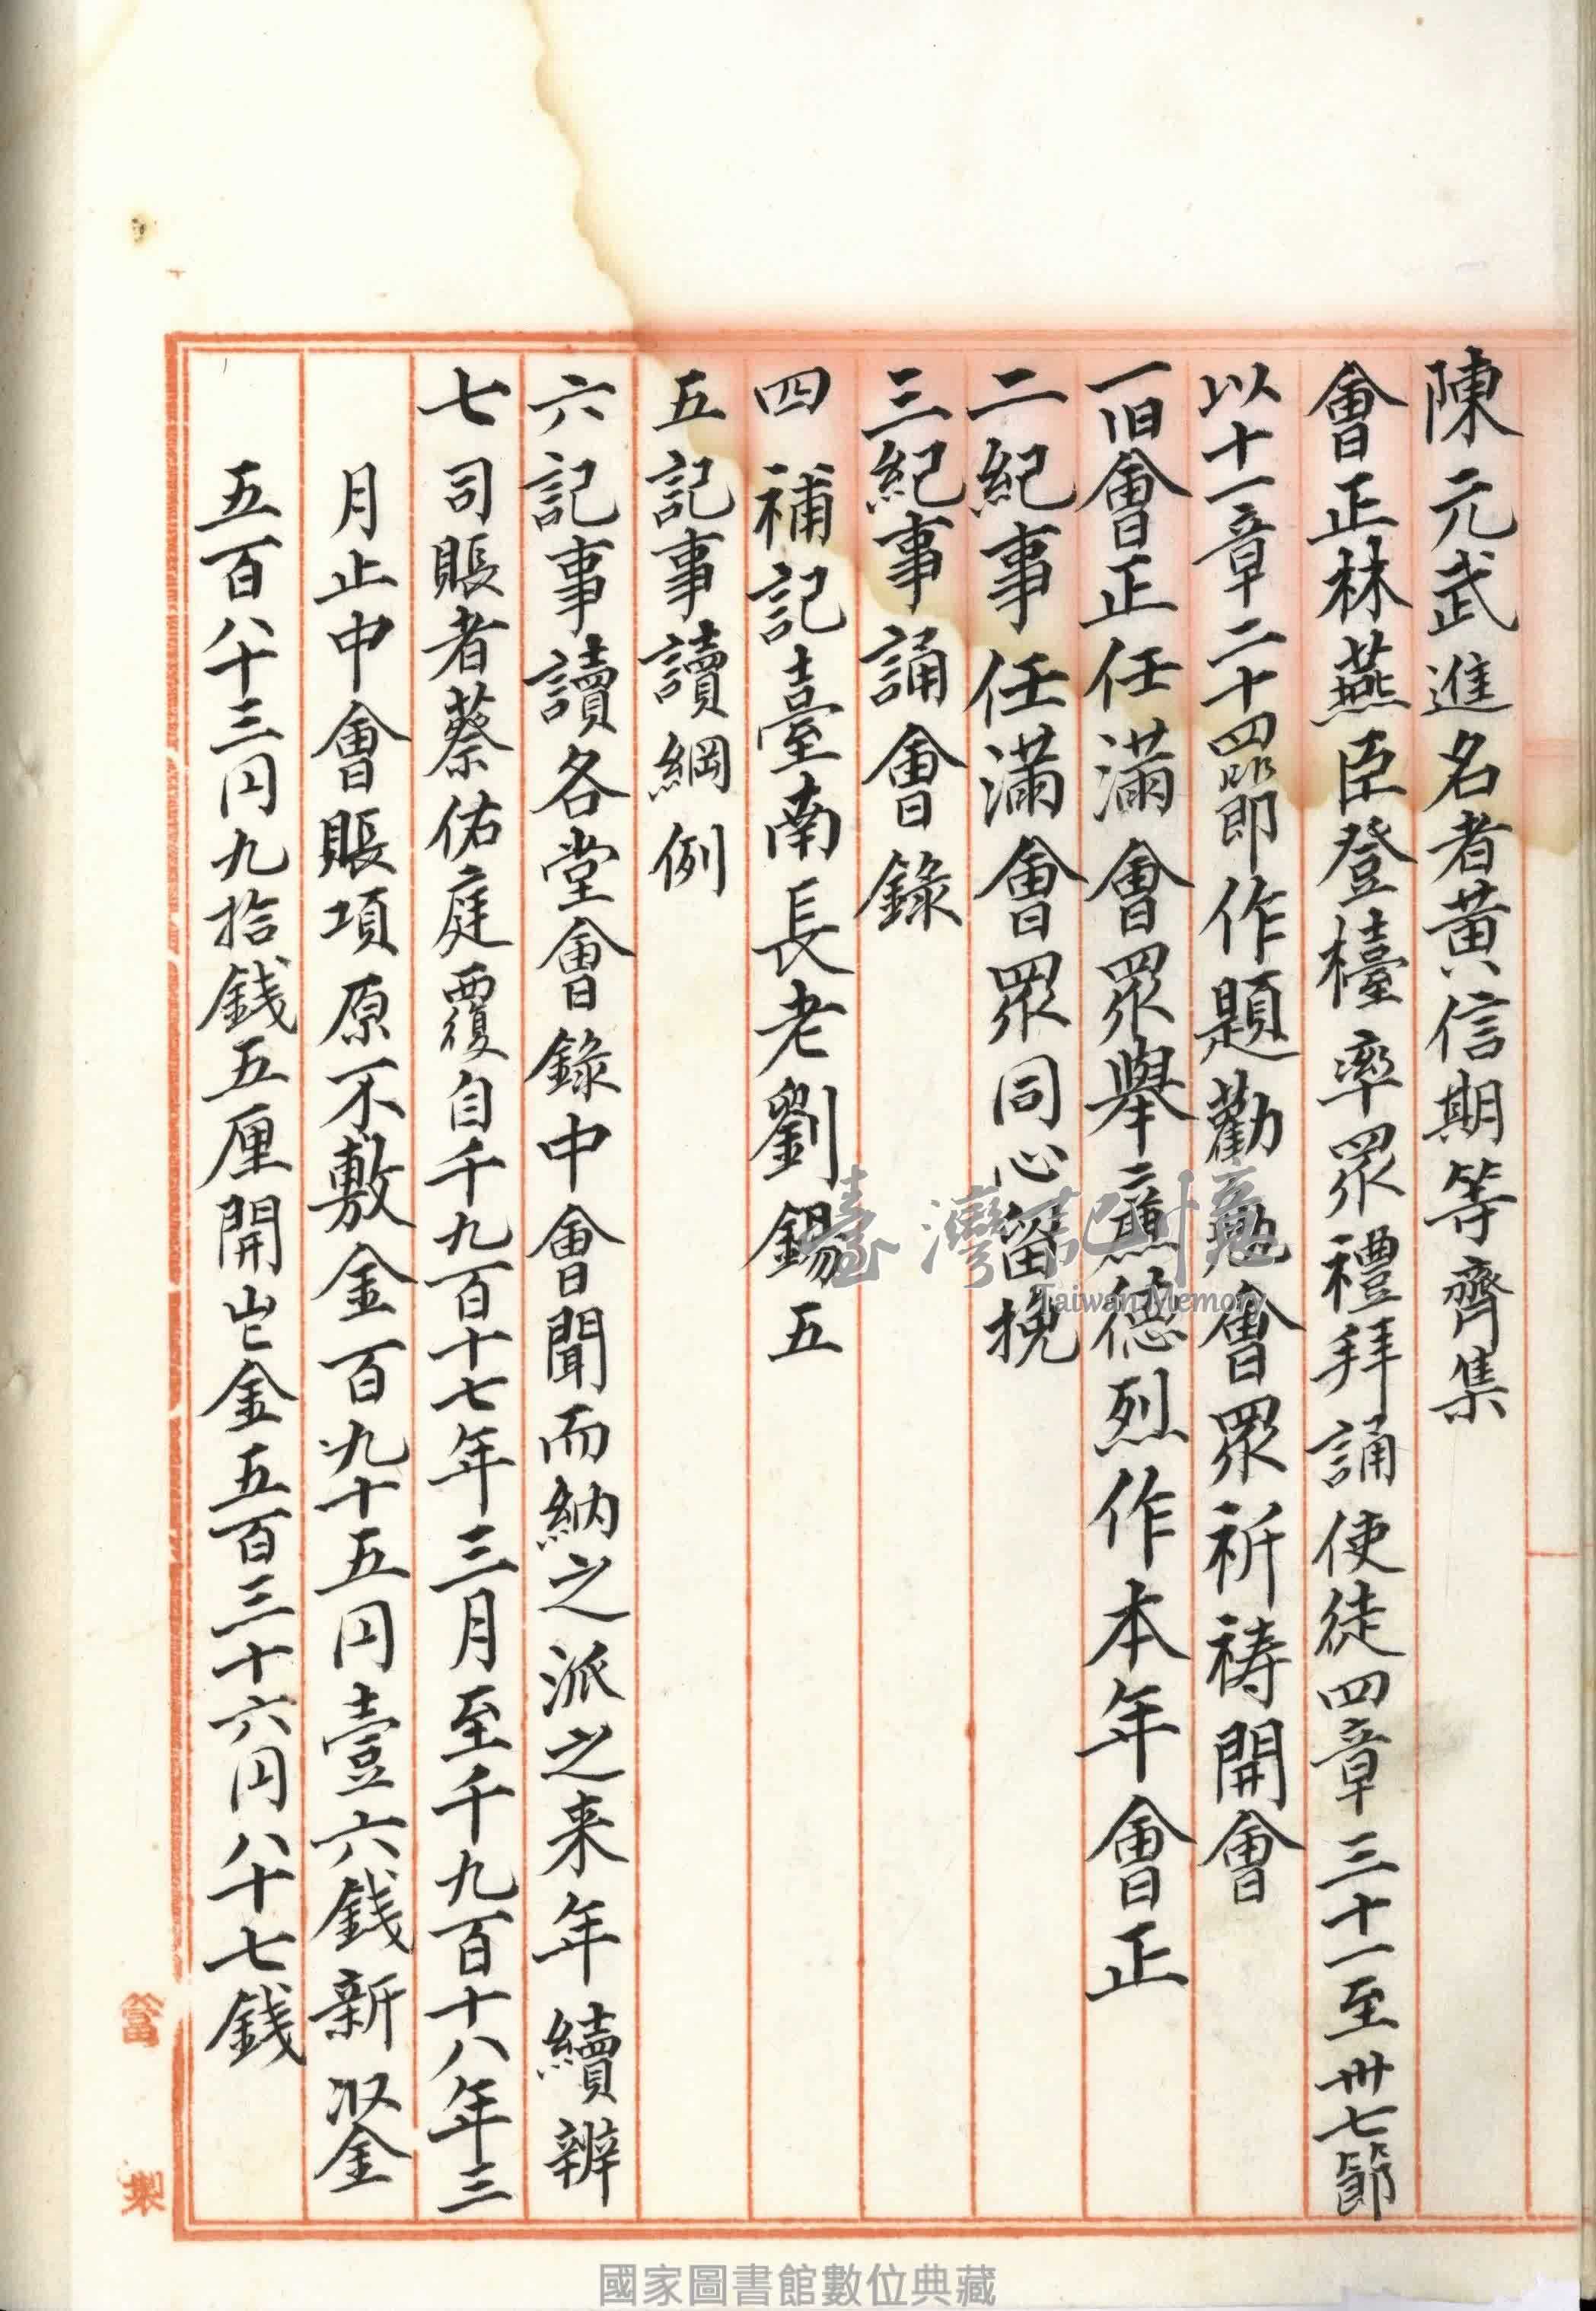 陳元武進名者黃信期等齊集
會正林燕臣登檯率眾禮拜誦使徒四章三十一至卅七節
以十一章二十四節作題勸勉會眾祈祷開會
一旧會正任滿會眾舉高德烈作本年會正
二紀事任滿會眾同心留挽
三紀事誦會錄
四 補記臺南長老劉錫五
五記事讀綱例
六記事讀各堂會錄中會聞而納之派之来年續辦
七司賬者蔡佑庭覆自千九百十七年三月至千九百十八年三
月止中會賬項原不敷金百九十五円壹六錢新収金
五百八十三円九拾錢五厘開出金五百三十六円八十七錢
富製
臺灣記憶
Taiwan Memory
國家圖書館數位典藏